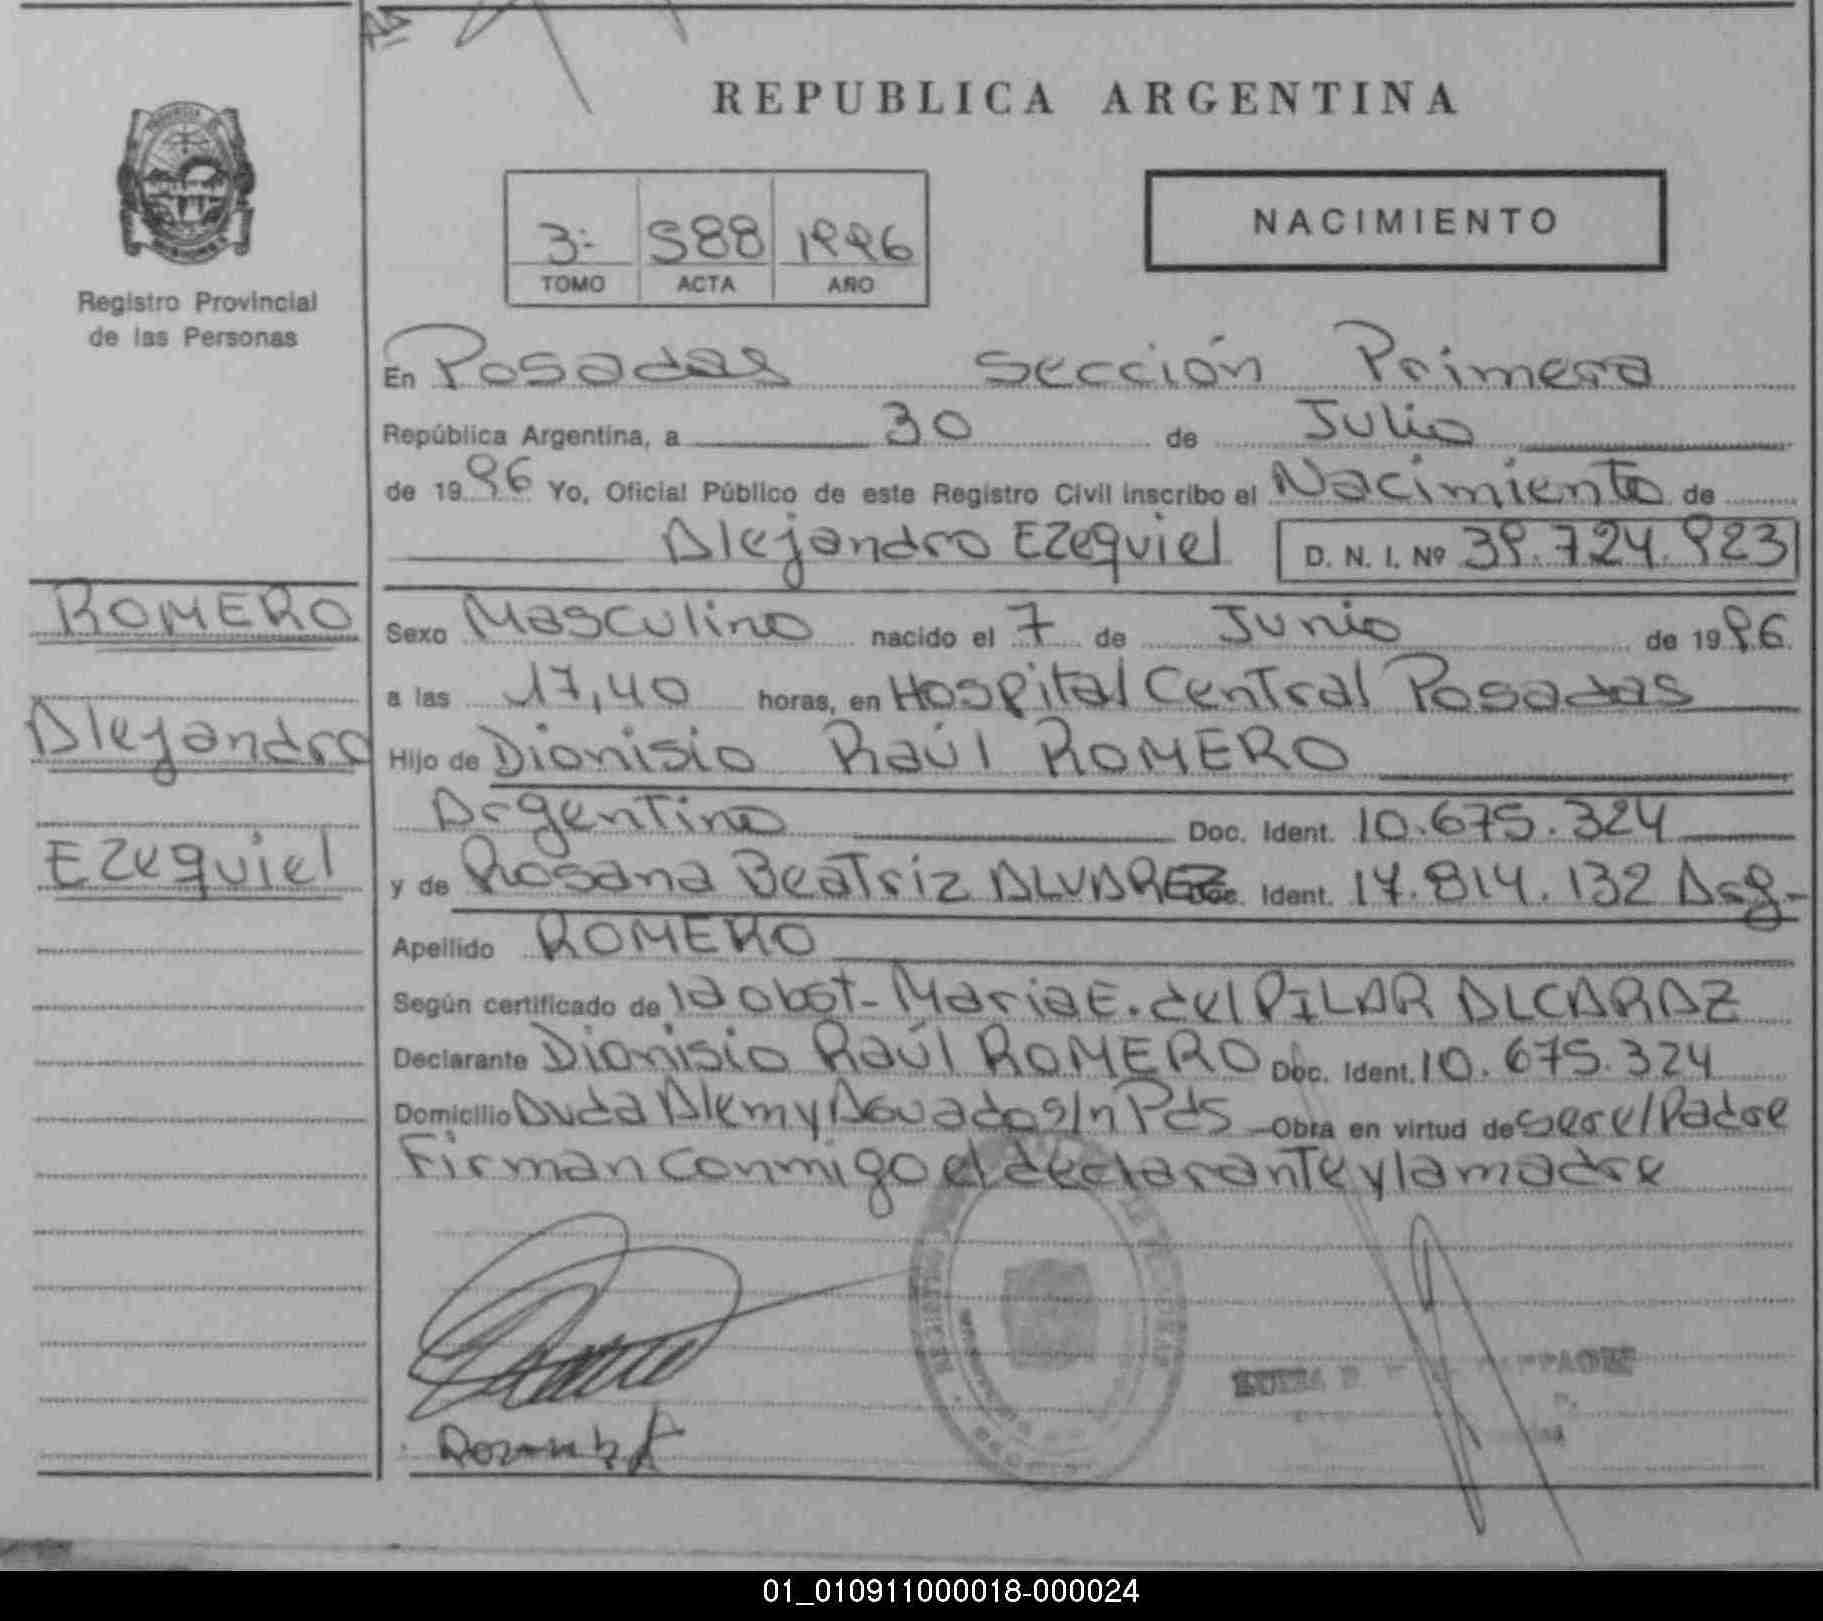 REPUBLICA ARGENTINA
Registro Provincial
de las Personas
3: 588 1996
TOMO ACTA AÑO
NACIMIENTO
En Posadas Sección Primera
República Argentina, a 30 de Julio
de 1996 Yo, Oficial Público de este Registro Civil inscribo el Nacimiento de
Alejandro EZequiel D. N. I. Nº 39.724.923
ROMERO
Alejandro
EZequiel
Sexo Masculino nacido el 7 de Junio de 1996.
a las 17,40 horas, en Hospital Central Posadas
Hijo de Dionisio Raúl ROMERO
Argentino Doc. Ident. 10.675.324
y de Rosana Beatriz ALVAREZ Doc. Ident. 17.814.132 Arg-
Apellido ROMERO
Según certificado de la obst- Maria E. del PILAR ALCARAZ
Declarante Dionisio Raúl ROMERO Doc. Ident. 10.675.324
Domicilio Avda Alem y s/n Pds Obra en virtud de ser el Padre
Firman conmigo el declarante y la madre
01_010911000018-000024